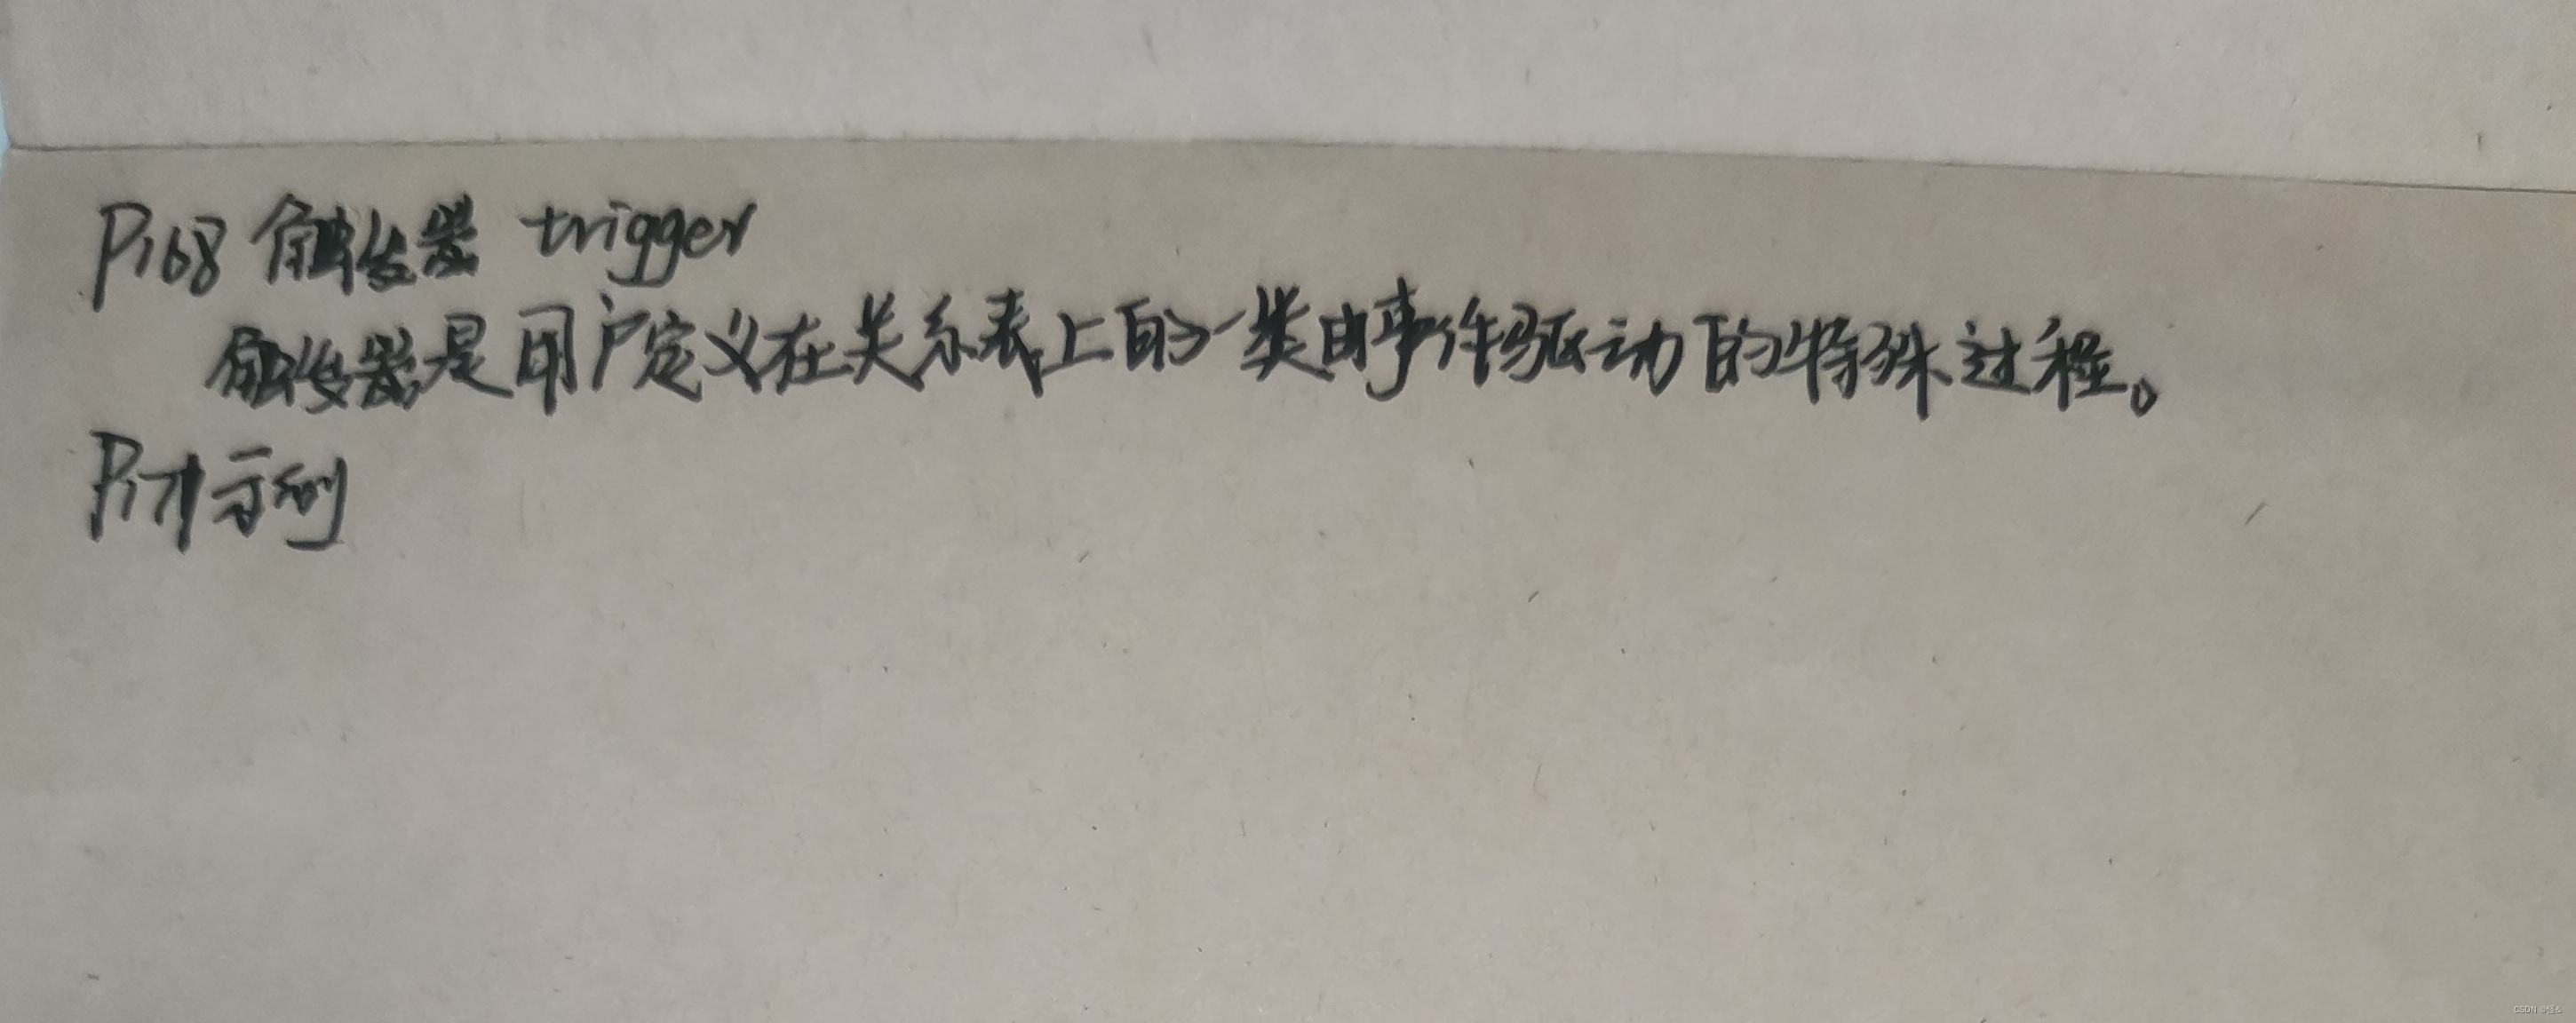 P168 触发器 trigger
触发器是用户定义在关系表上的一类由事件驱动的特殊过程。
P171示例
CSDN @怪&